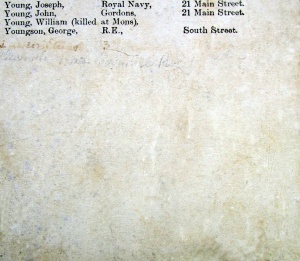 Young, Joseph, Royal Navy, 21 Main Street.
Young, John, Gordons, 21 Main Street.
Young, William (killed at Mons).
Youngson, George, R.E., South Street.